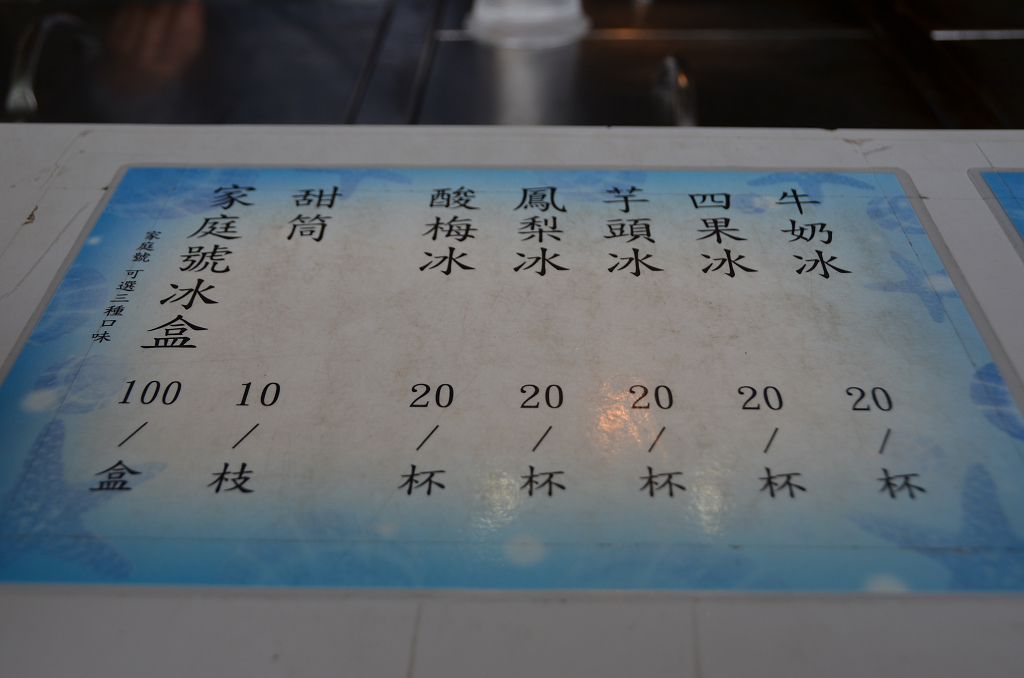 牛奶冰 20/杯
四果冰 20/杯
芋頭冰 20/杯
鳳梨冰 20/杯
酸梅冰 20/杯
甜筒 10/枝
家庭號冰盒 100/盒
家庭號 可選三種口味